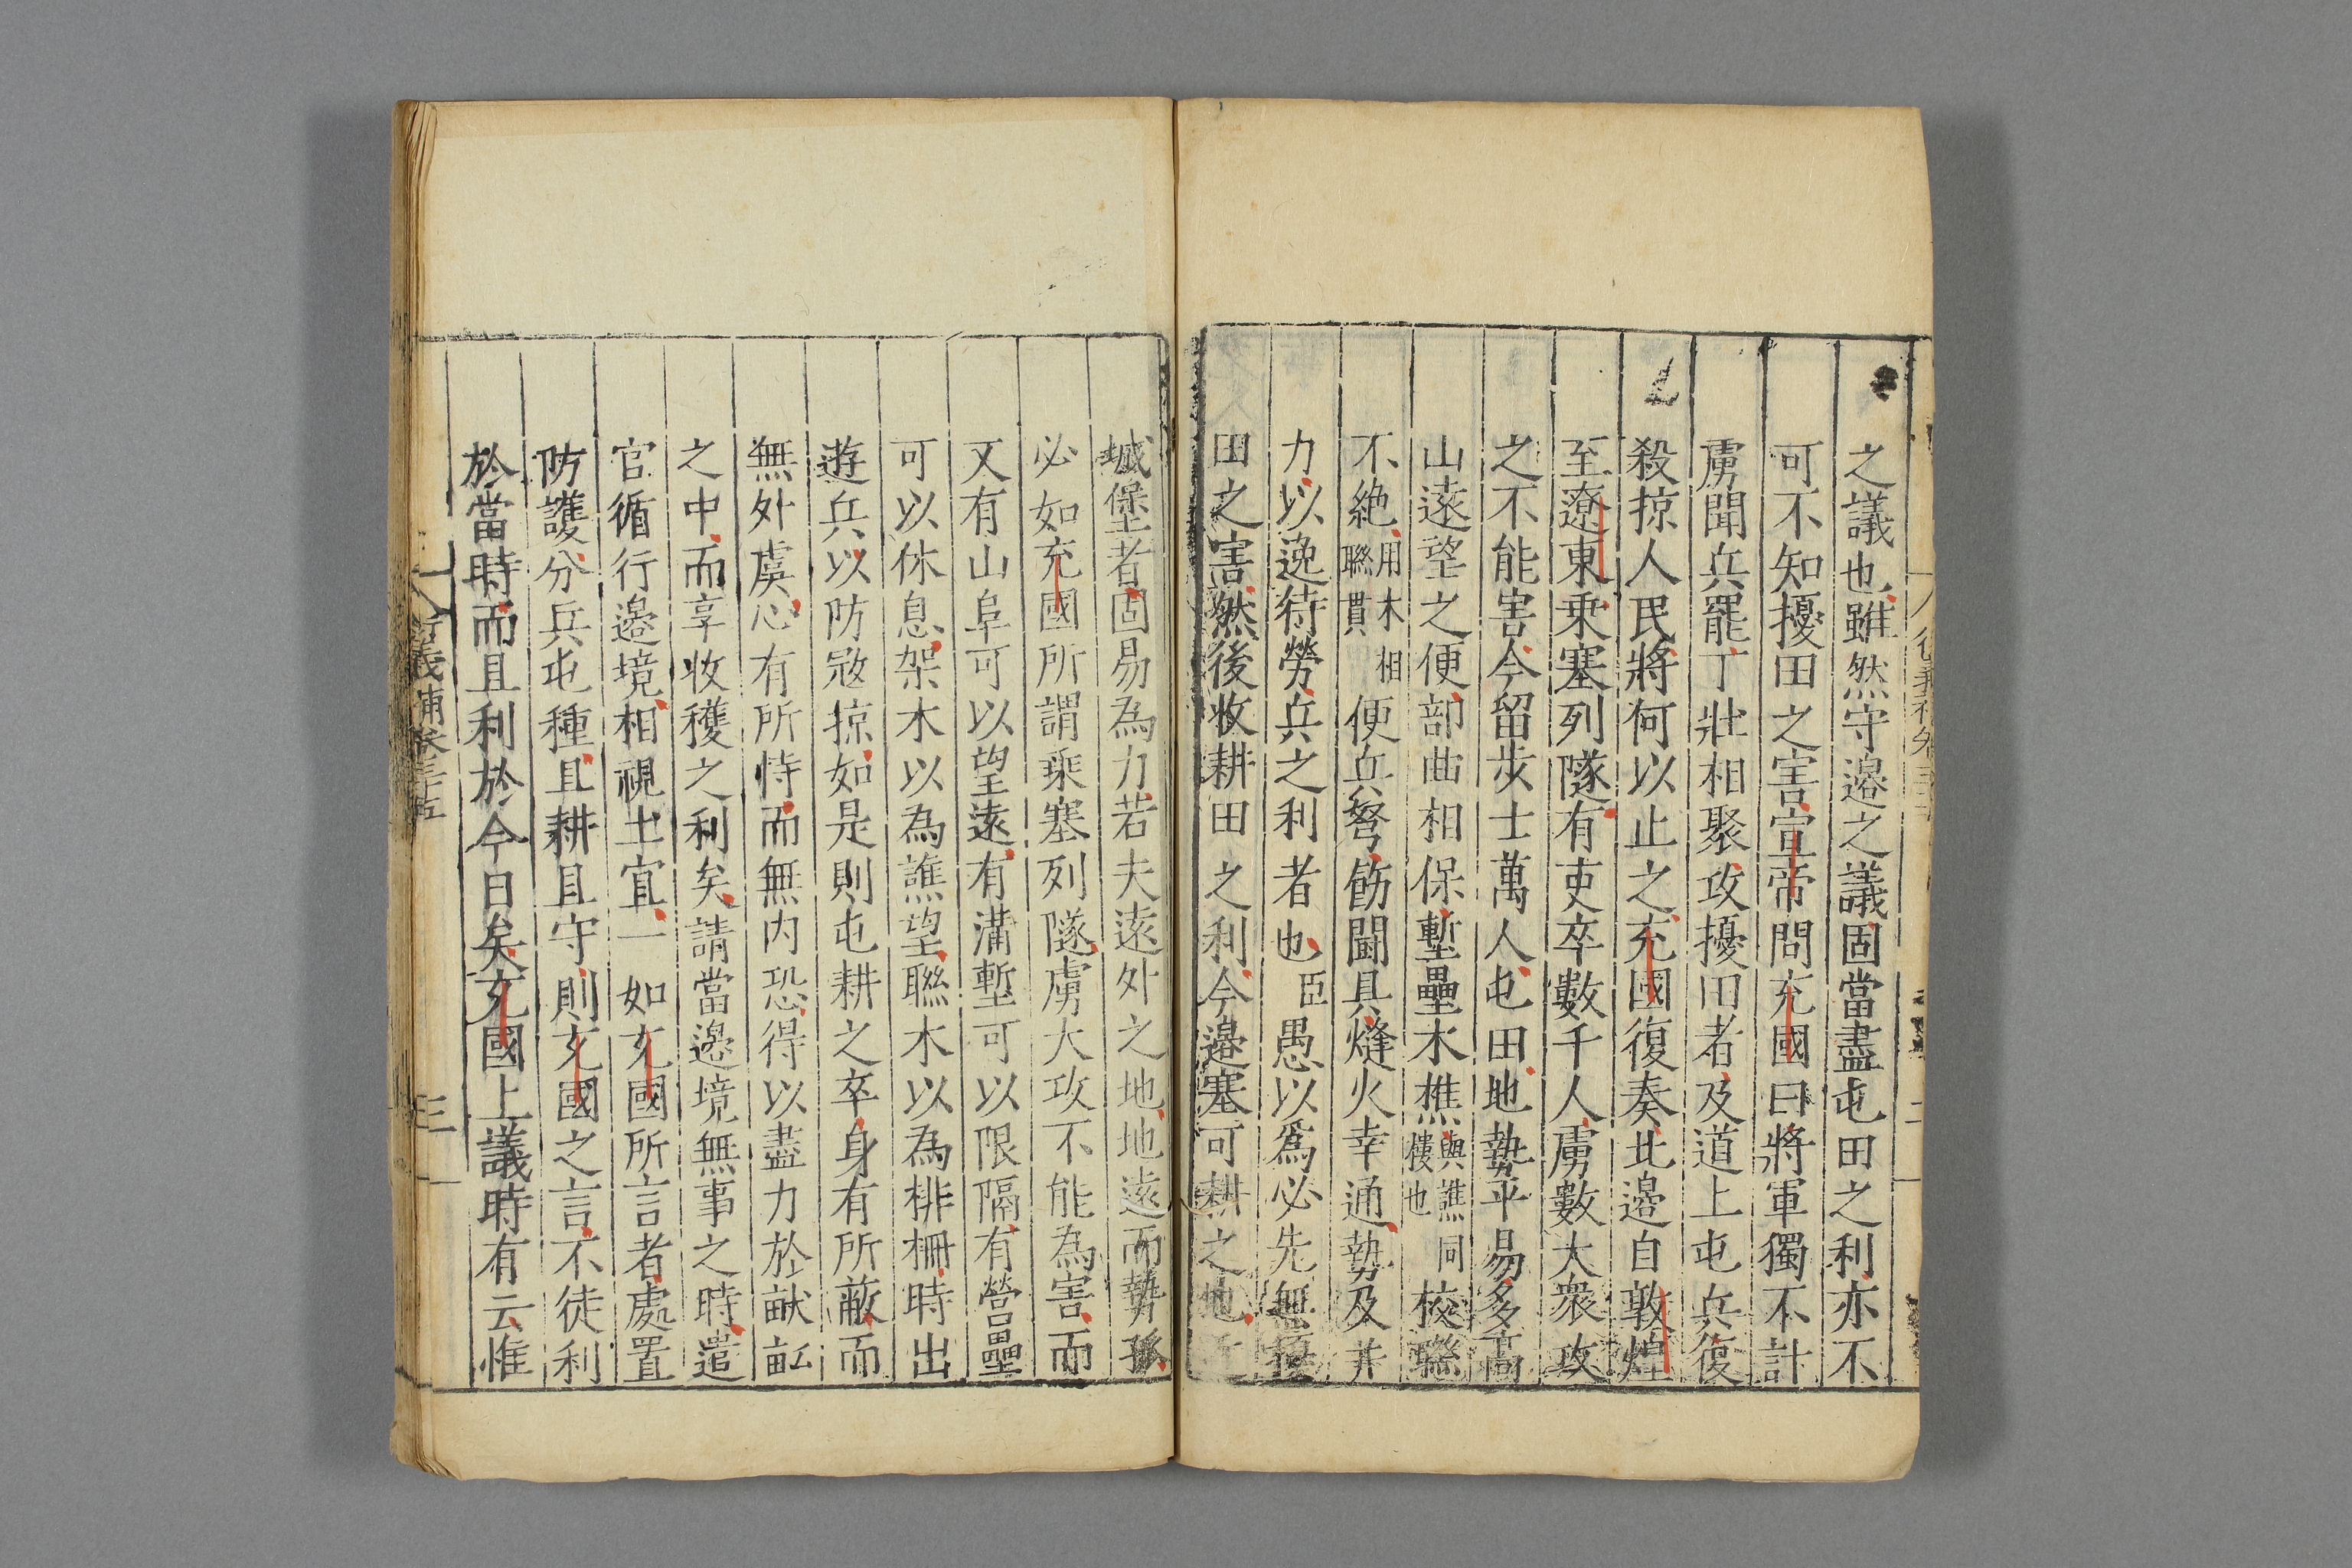 之議也雖然守邊之議固當盡屯田之利亦不
可不知擾田之害宣帝問充國曰將軍獨不計
虜聞兵罷丁壯相聚攻擾田者及道上屯兵復
殺掠人民將何以止之充國復奏北邊自敦煌
至遼東乘塞列隧有吏卒數千人虜數大衆攻
之不能害今留步士萬人屯田地勢平易多高
山遠望之便部曲相保塹壘木樵與譙同樓也校聯
不絶用木相聯貫便兵弩飭鬬具烽火幸通勢及并
力以逸待勞兵之利者也臣愚以爲必先無擾
田之害然後收耕田之利今邊塞可耕之地近
城堡者固易為力若夫遠外之地地遠而勢孤
必如充國所謂乘塞列隧虜大攻不能為害而
又有山阜可以望遠有溝塹可以限隔有營壘
可以休息架木以為譙望聯木以為排柵時出
遊兵以防寇掠如是則屯耕之卒身有所蔽而
無外虞心有所恃而無内恐得以盡力於畎畝
之中而享收穫之利矣請當邊境無事之時遣
官循行邊境相視土宜一如充國所言者處置
防護分兵屯種且耕且守則充國之言不徒利
於當時而且利於今日矣充國上議時有云惟
衍義補卷三十五
三